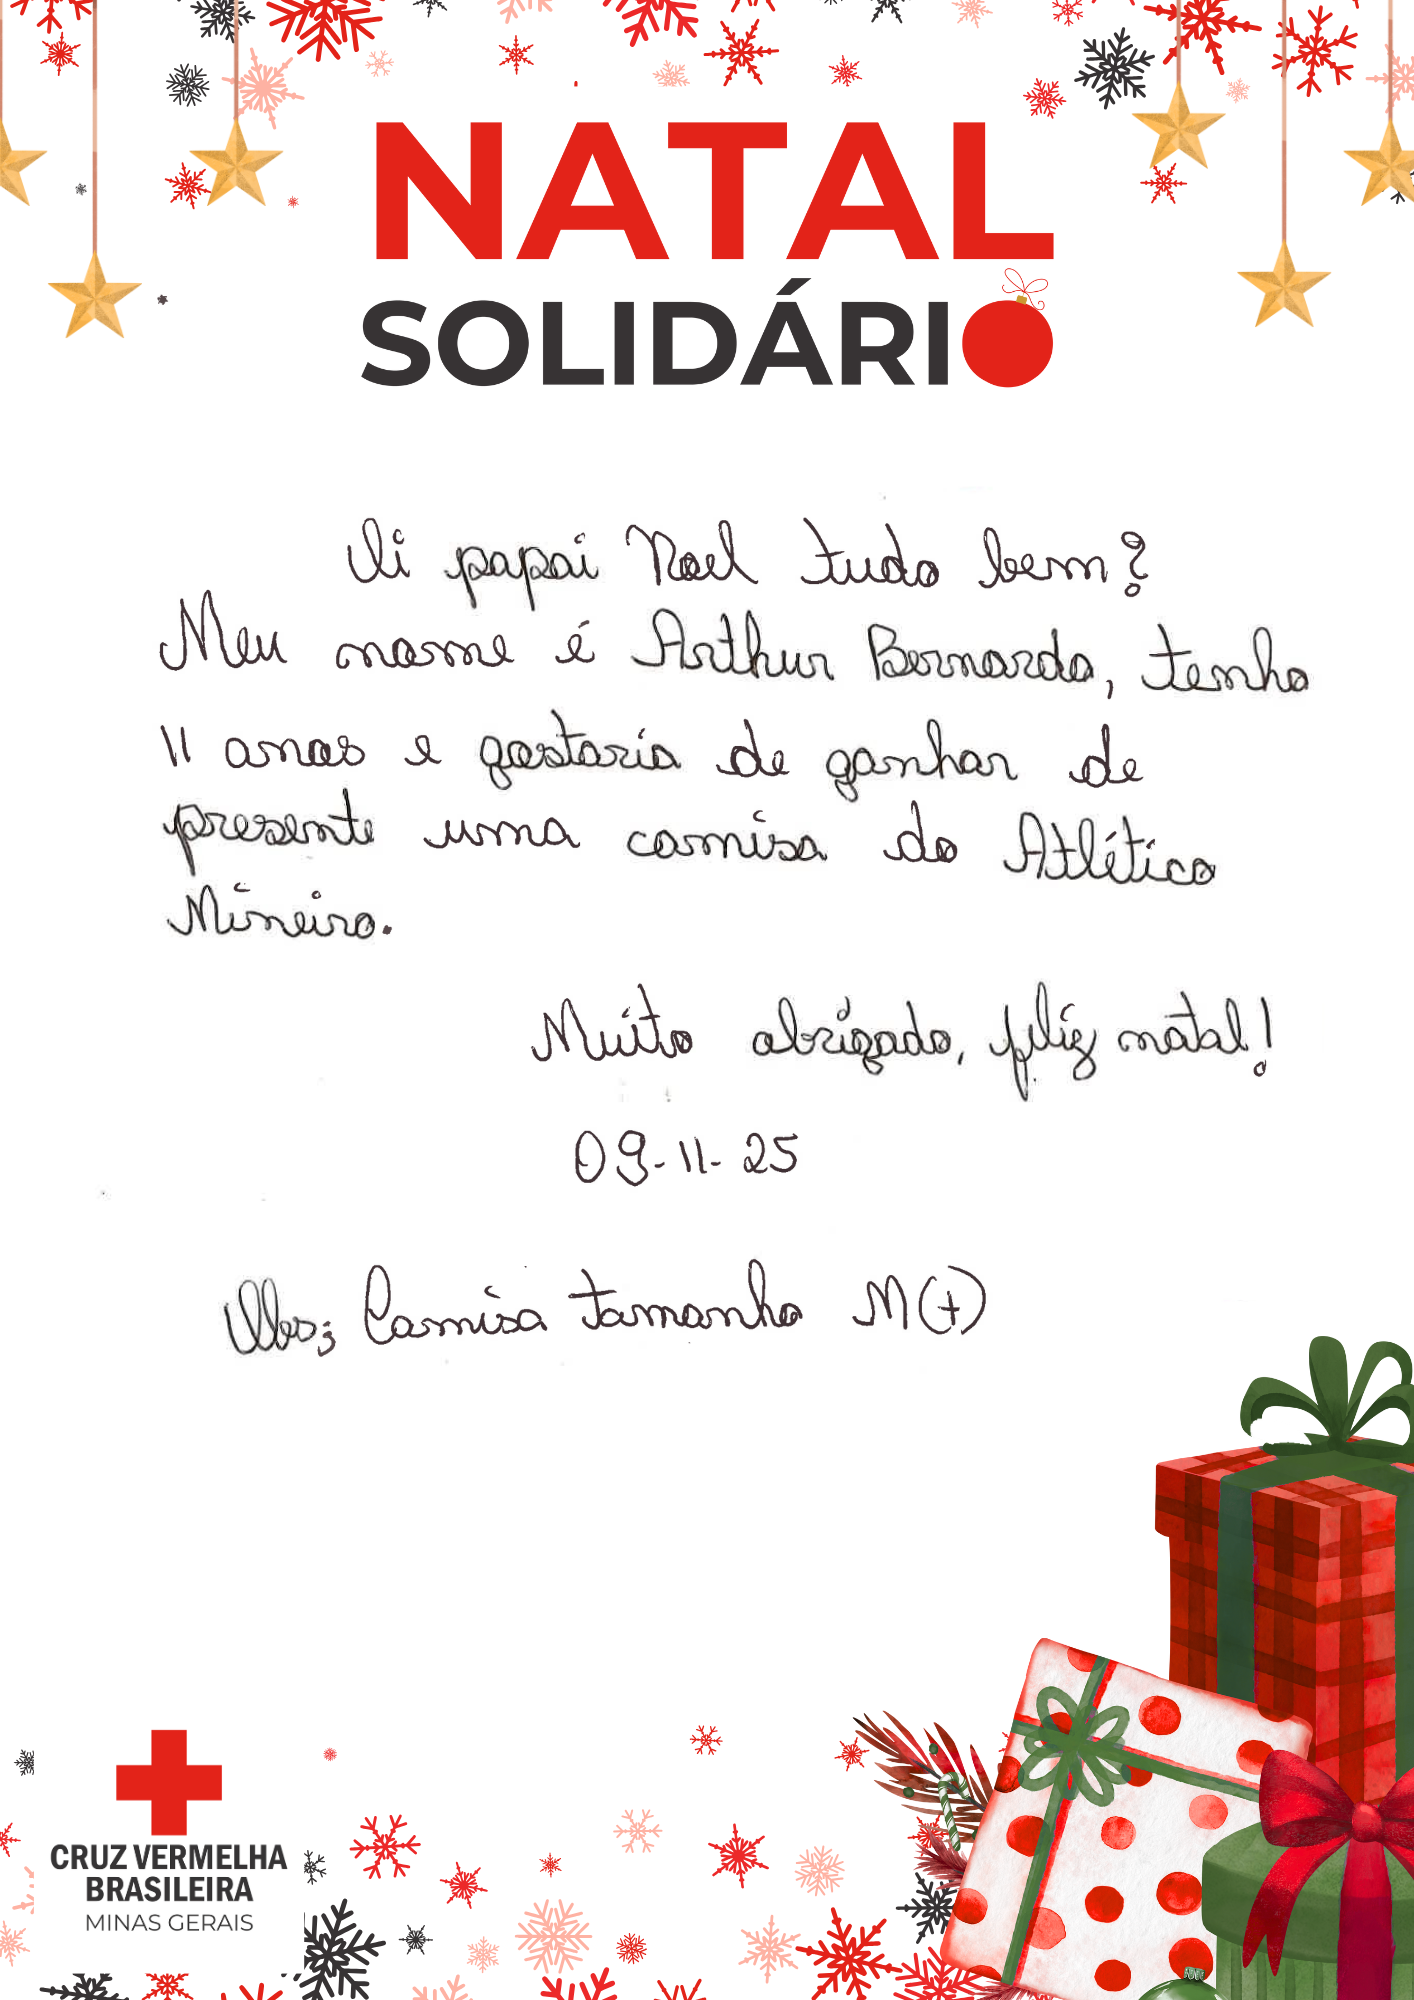 NATAL
SOLIDÁRIO
Oi papai Noel tudo bem?
Meu nome é Arthur Bernardo, tenho
11 anos e gostaria de ganhar de
presente uma camisa do Atlético
Mineiro.
Muito obrigado, feliz natal!
09-11-25
Obs; Camisa tamanho M(+)
CRUZ VERMELHA
BRASILEIRA
MINAS GERAIS